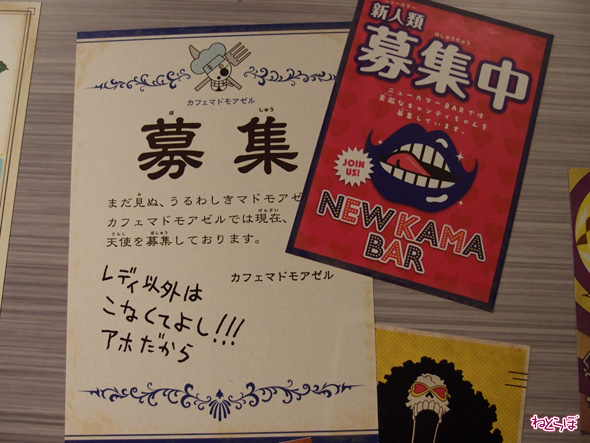 カフェマドモアゼル
募集
まだ見ぬ、うるわしきマドモアゼ
カフェマドモアゼルでは現在、
天使を募集しております。
カフェマドモアゼル
レディ以外は
こなくてよし!!!
アホだから
新人類
募集中
ニューカマーBARでは
素敵なキャンディちゃんを
募集しています。
JOIN
US!
NEW KAMA
BAR
ねとらぼ